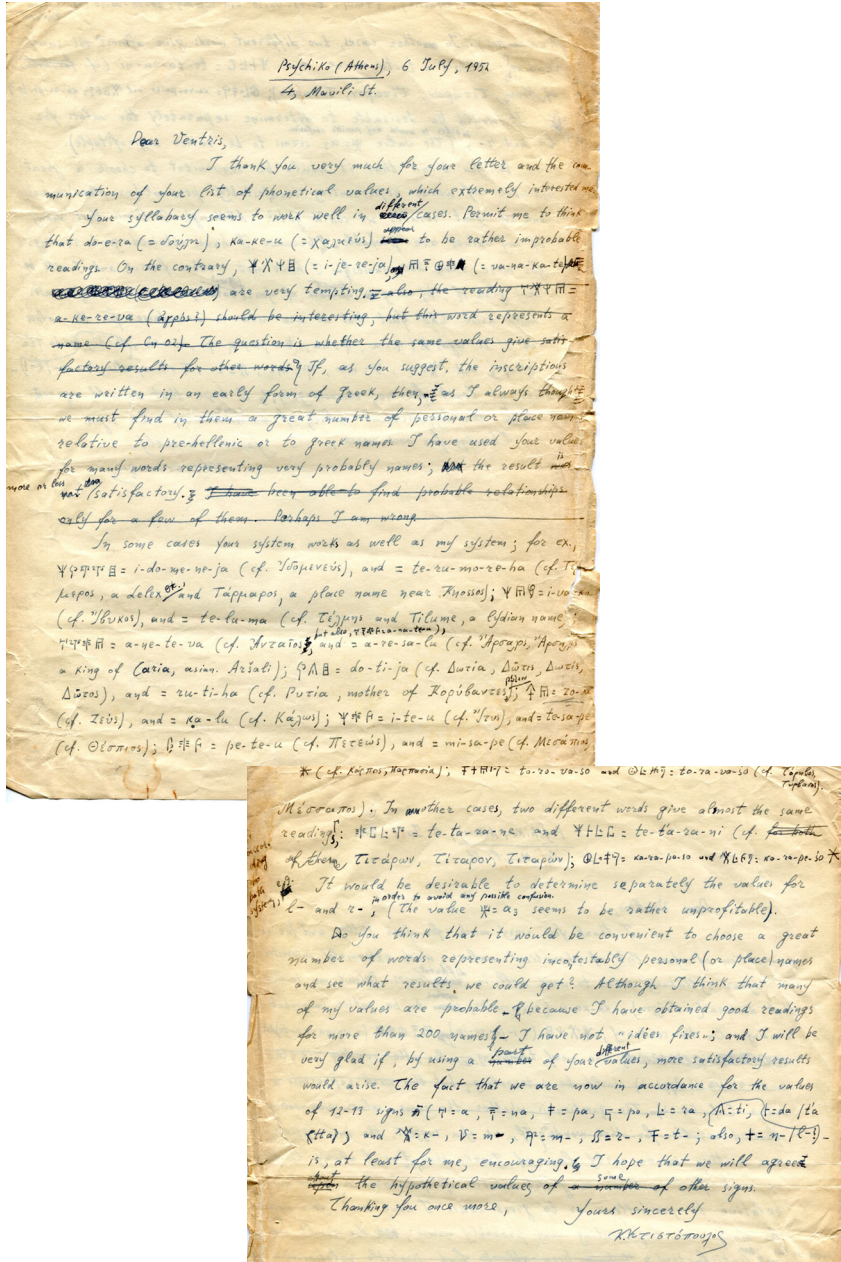 Psychiko (Athens), 6 July, 1952
4, Mavili St.
Dear Ventris,
I thank you very much for your letter and the com-
munication of your list of phonetical values, which extremely interested me.
Your syllabary seems to work well in different cases. Permit me to think
that do-e-ra (= δούλη), ka-ke-u (= χαλκεύς) appear to be rather improbable
readings. On the contrary, (= i-je-re-ja) and (= va-na-ka-te)
are very tempting. also, the reading =
a-ke-re-va (ἀγρός?) should be interesting, but this word represents a
name (cf. Cn 02). The question is whether the same values give satis-
factory results for other words? If, as you suggest, the inscriptions
are written in an early form of Greek, then, as I always thought
we must find in them a great number of personal or place names
relative to pre-hellenic or to greek names. I have used your values
for many words representing very probably names; the result is
more or less satisfactory. I have been able to find probable relationships
only for a few of them. Perhaps I am wrong.
In some cases your system works as well as my system; for ex.,
= i-do-me-ne-ja (cf. Ἰδομενεύς), and = te-ru-mo-re-ha (cf.
μερος, a Lelex and Τάρμαρος, a place name near Knossos);
(cf. Ἴβυκος), and = te-lu-ma (cf. Τέλμης and Tilume, a lydian name;
= a-ne-te-va (cf. Ἀνταῖος, and = a-re-sa-lu (cf. Ἄρσαλις,
a king of Caria, asian. Aršali); = do-ti-ja (cf. Δωτία, Δῶτις, Δωτίς,
Δῶτος), and = ru-ti-ha (cf. Ρυτία, mother of Κορύβαντες);
(cf. Ζεύς), and = ka-lu (cf. Κάλως); = i-te-u (cf. Ἴτυς), and = te-sa-pe
(cf. Θέσπιος); = pe-te-u (cf. Πετεώς), and = mi-sa-pe (cf. Μεσάπιος,
* (cf. Κάρπος, Καρπασία); = to-ro-va-so and = to-ra-va-so (cf.
Μέσσαπος). In other cases, two different words give almost the same
reading: = te-ta-ra-ne and = te-ta-ra-ni (cf. for both
of them, Τιτάρων, Τίταρον, Τιταρών); = ka-ra-pa-so and = ka-ra-pe-so *
It would be desirable to determine separately the values for
l- and r-, in order to avoid any possible confusion. (The value = a₃ seems to be rather unprofitable).
Do you think that it would be convenient to choose a great
number of words representing incontestably personal (or place) names
and see what results we could get? Although I think that many
of my values are probable - because I have obtained good readings
for more than 200 names - I have not "idées fixes"; and I will be
very glad if, by using a part of your different values, more satisfactory results
would arise. The fact that we are now in accordance for the values
of 12-13 signs ( = a, = na, = pa, = po, = ra, = ti, = da / ta
(tta)) and = k-, = m-, = m-, = r-, = t-; also, = n- / l-?) -
is, at least for me, encouraging. I hope that we will agree
the hypothetical values of some number of other signs.
Thanking you once more, Yours sincerely
Κ. Κτιστόπουλος